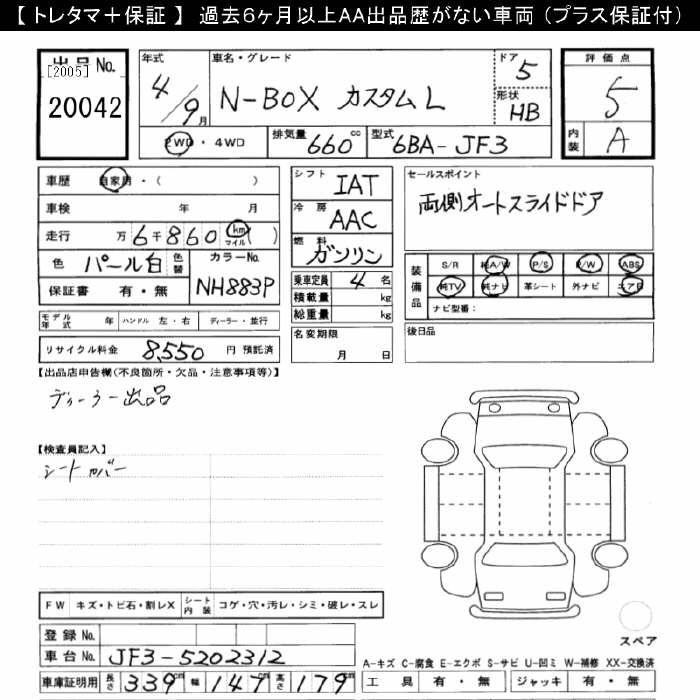 【 トレタマ＋保証 】 過去6ヶ月以上AA出品歴がない車両（プラス保証付）
出品 No.
[2005]
20042
年式 車名・グレード ドア 5
4/9月 N-BOX カスタム L 形状 HB
2WD・4WD 排気量 660cc 型式 6BA-JF3
評価点 5
内装 A
車歴 自家用・( )
車検 年 月
走行 万 6千860 km マイル ( )
色 パール白 色替 カラーNo. NH883P
保証書 有・無
モデル年式 年 ハンドル 左・右 ディーラー・並行
リサイクル料金 8,550 円 預託済
シフト IAT
冷房 AAC
燃料 ガソリン
乗車定員 4 名
積載量 kg
総重量 kg
名変期限
月 日
セールスポイント
両側オートスライドドア
装備品 S/R 純A/W P/S P/W ABS
純TV 純ナビ 革シート 外ナビ エアB
ナビ型番：
後日品
【出品店申告欄(不良箇所・欠品・注意事項等)】
ディーラー出品
【検査員記入】
シートカバー
FW キズ・トビ石・割レX シート内装 コゲ・穴・汚レ・シミ・破レ・スレ
登録 No.
車台 No. JF3-5202312
車庫証明用 長さ 339cm 幅 147cm 高さ 179cm
スペア
A-キズ C-腐食 E-エクボ S-サビ U-凹ミ W-補修 XX-交換済
工具 有・無 ジャッキ 有・無